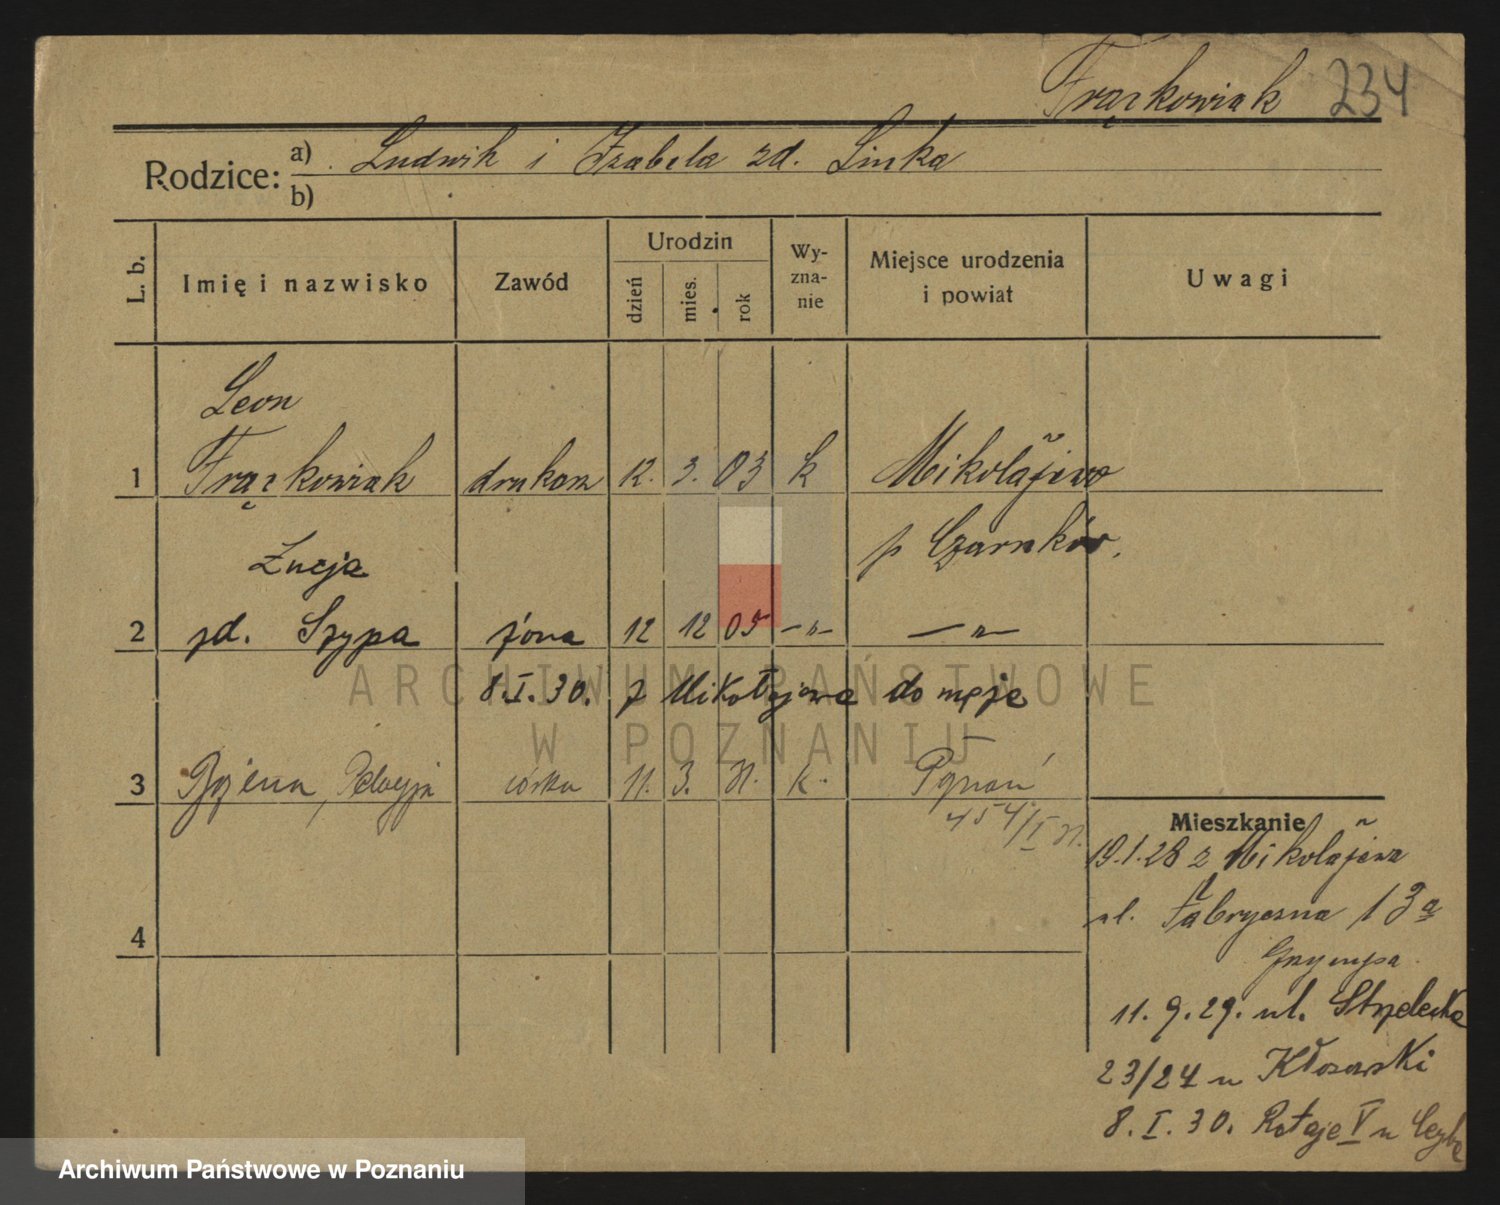 Frąckowiak 234
Rodzice: a) Ludwik i Izabela zd. Linka
b)
L. b. Imię i nazwisko Zawód Urodzin dzień mies. rok Wyznanie Miejsce urodzenia i powiat Uwagi
Leon
1 Frąckowiak drukarz 12. 3. 03 k Mikołajewo
p Czarnków.
Łucja
2 zd. Szypa żona 12 12 05 -"- -"-
8.I.30. z Mikołajewa do męża
3 Bożena, Pelagja córka 11. 3. 31. k. Poznań
454/I 31.
4
Mieszkanie
19.1.28 z Mikołajewa
ul. Fabryczna 13a
11.9.29. ul. Strzelecka
23/24 u Kłosowski
8.I.30. Rataje V u
ARCHIWUM PAŃSTWOWE
W POZNANIU
Archiwum Państwowe w Poznaniu